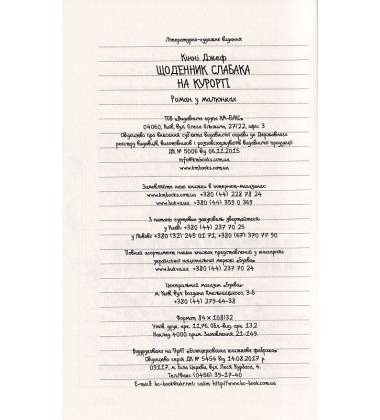 Літературно-художнє видання
Кінні Джеф
ЩОДЕННИК СЛАБАКА
НА КУРОРТІ
Роман у малюнках
ТОВ «Видавнича група КМ-БУКС»
04060, Київ, вул. Олега Ольжича, 27/22, офіс 3
Свідоцтво про внесення суб'єкта видавничої справи до Державного
реєстру видавців, виготівників і розповсюджувачів видавничої продукції
ДК № 5006 від 06.11.2015
info@kmbooks.com.ua
www.kmbooks.com.ua
Замовляйте наші книжки в інтернет-магазинах:
www.kmbooks.com.ua +380 (44) 228 78 24
www.bukva.ua +380 (44) 359 0 369
З питань гуртових закупівель звертайтеся:
у Києві: +380 (44) 237 70 25
у Львові: +380 (32) 245 01 71, +380 (67) 370 77 50
Повний асортимент наших книжок представлений у книгарнях
української національної мережі «Буква»
www.bukva.ua +380 (44) 237 70 24
Центральний магазин «Буква»:
м. Київ, вул. Богдана Хмельницького, 3-Б
+380 (44) 279-64-38
Формат 84 × 108/32
Умов. друк. арк. 11,76. Обл.-вид. арк. 13,2
Наклад 4000 прим. Замовлення 21-149.
Віддруковано на ПрАТ «Білоцерківська книжкова фабрика»
Свідоцтво серія ДК № 5454 від 14.08.2017 р.
09117, м. Біла Церква, вул. Леся Курбаса, 4.
Тел./Факс (0456) 39-17-40
E-mail: bc-book@ukr.net; сайт: http://www.bc-book.com.ua